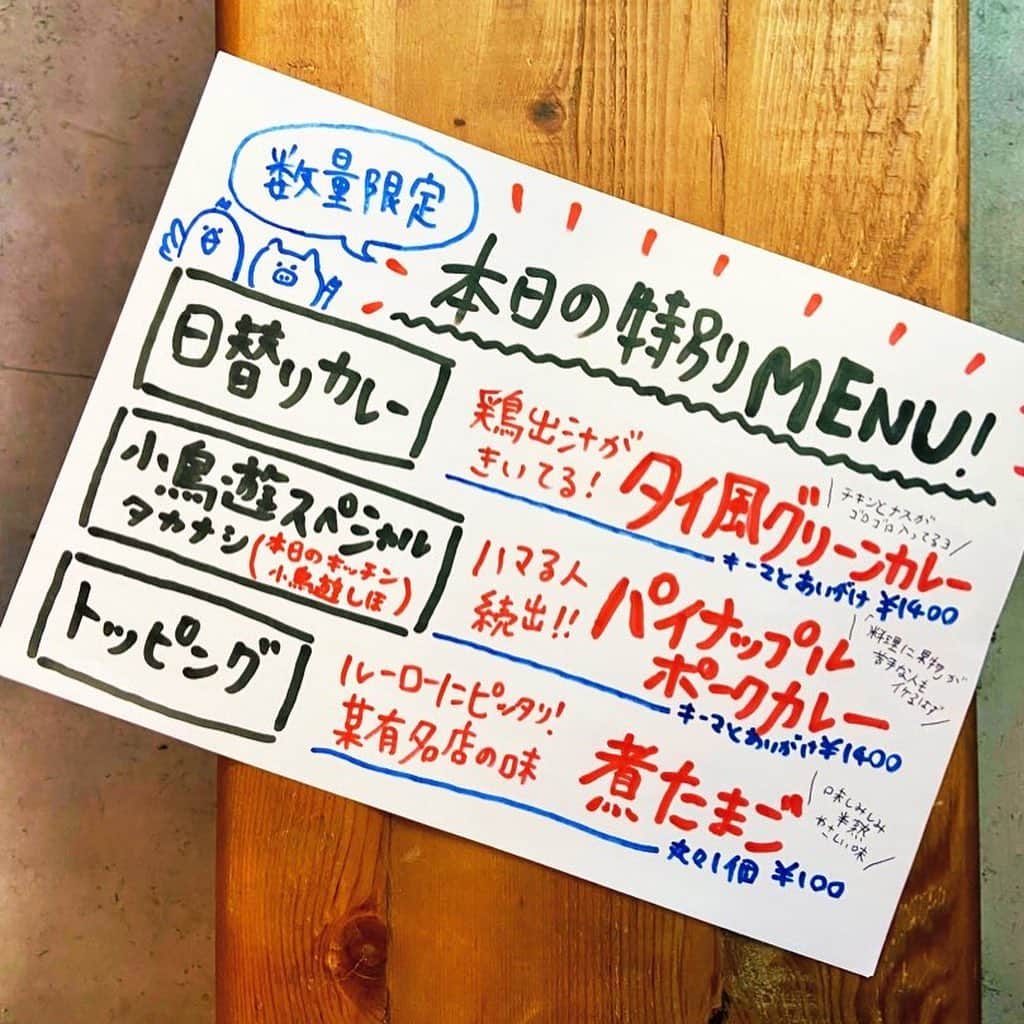 数量限定
本日の特別MENU!
日替りカレー
鶏出汁が
きいてる!
タイ風グリーンカレー
チキンとナスが
ゴロゴロ入ってるヨ
キーマとあいがけ ¥1400
小鳥遊スペシャル
タカナシ
(本日のキッチン
小鳥遊しほ)
ハマる人
続出!!
パイナップル
ポークカレー
料理に果物が
苦手な人も
イケるはず
キーマとあいがけ ¥1400
トッピング
ルーローにピッタリ!
某有名店の味
煮たまご
味しみしみ
半熟
やさしい味
丸々1個 ¥100